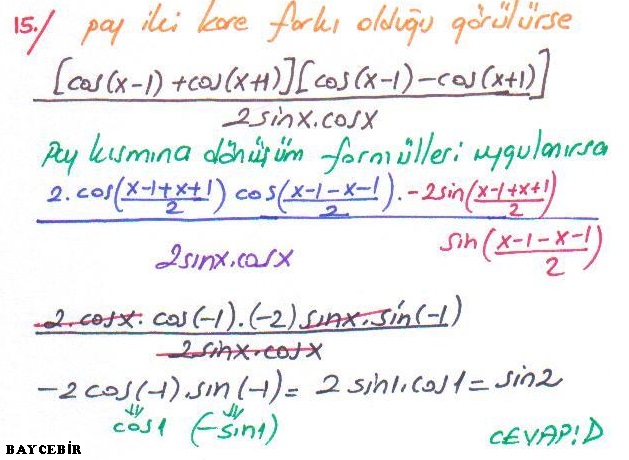 15./ pay iki kare farkı olduğu görülürse
[cos(x-1)+cos(x+1)][cos(x-1)-cos(x+1)]
2sinx.cosx
Pay kısmına dönüşüm formülleri uygulanırsa
2.cos(x-1+x+1/2) cos(x-1-x-1/2).-2sin(x-1+x+1/2)
2sinx.cosx sin(x-1-x-1/2)
2.cosx.cos(-1).(-2)sinx.sin(-1)
2sinx.cosx
-2cos(-1).sin(-1)= 2sin1.cos1= sin2
⇓ ⇓
cos1 (-sin1)
CEVAP:D
BAYCEBİR